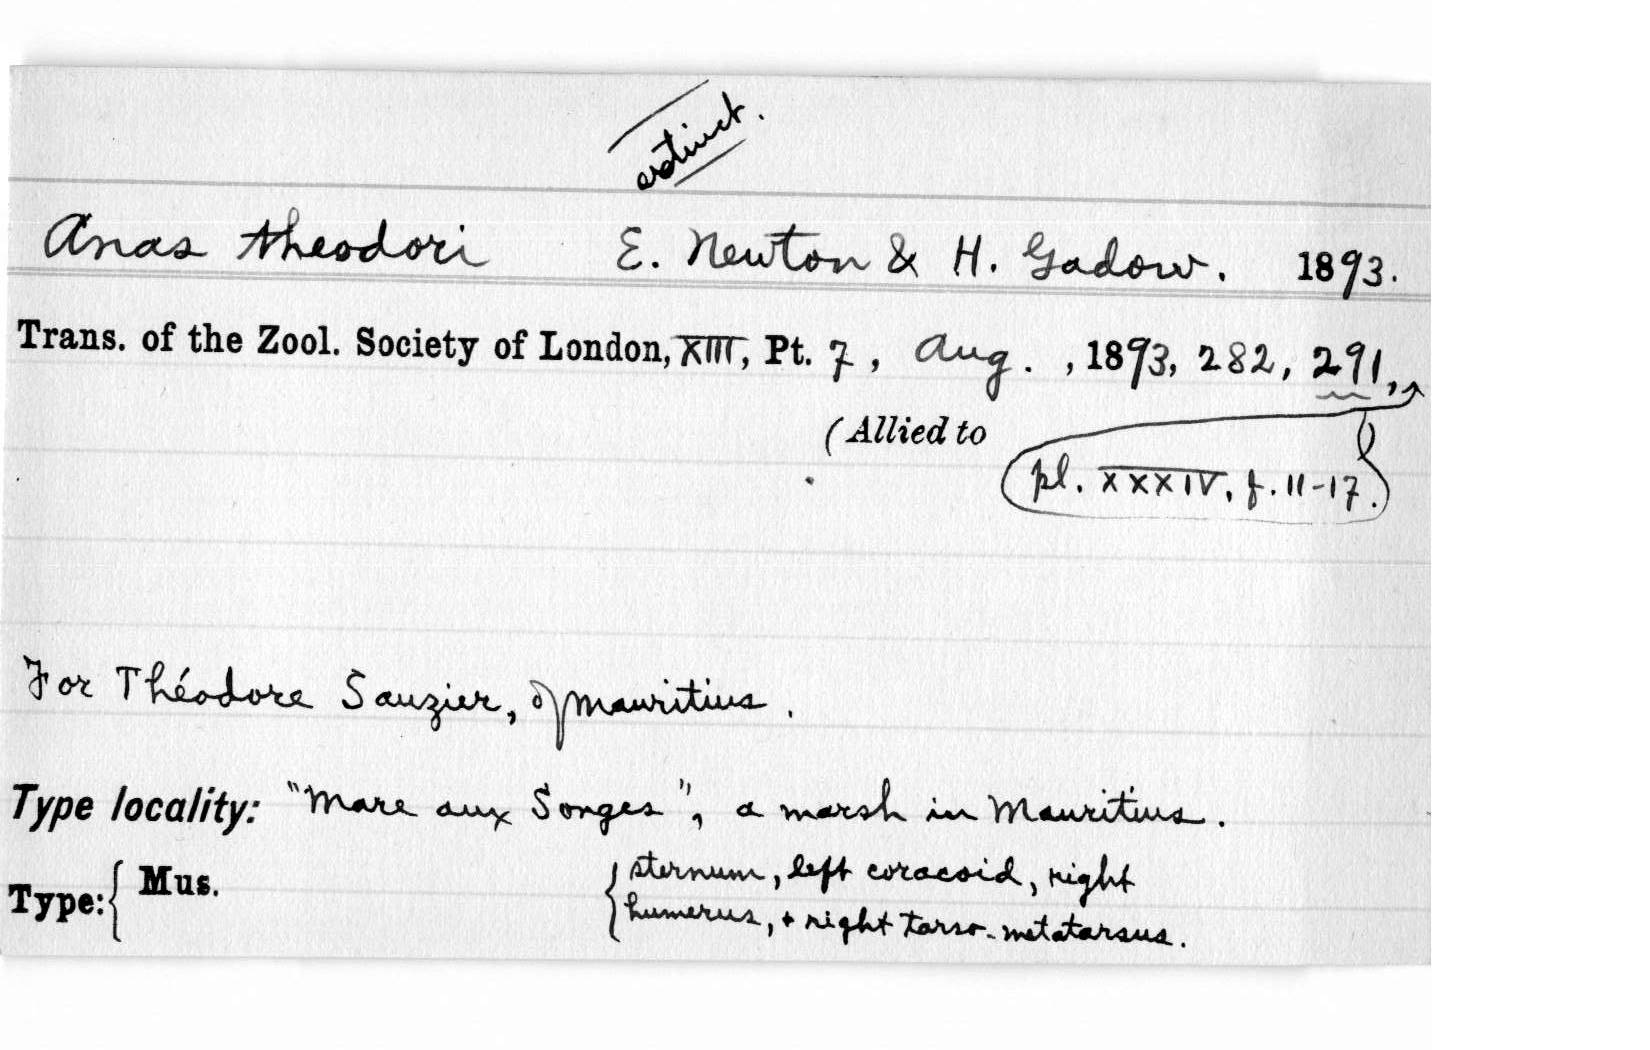 extinct.
Anas theodori E. Newton & H. Gadow. 1893.
Trans. of the Zool. Society of London, XIII, Pt. 7, Aug. , 1893, 282, 291,
(Allied to
pl. XXXIV, f. 11-17.
For Théodore Sauzier, of Mauritius.
Type locality: "Mare aux Songes", a marsh in Mauritius.
Type: { Mus. { sternum, left coracoid, right
humerus, + right tarso-metatarsus.